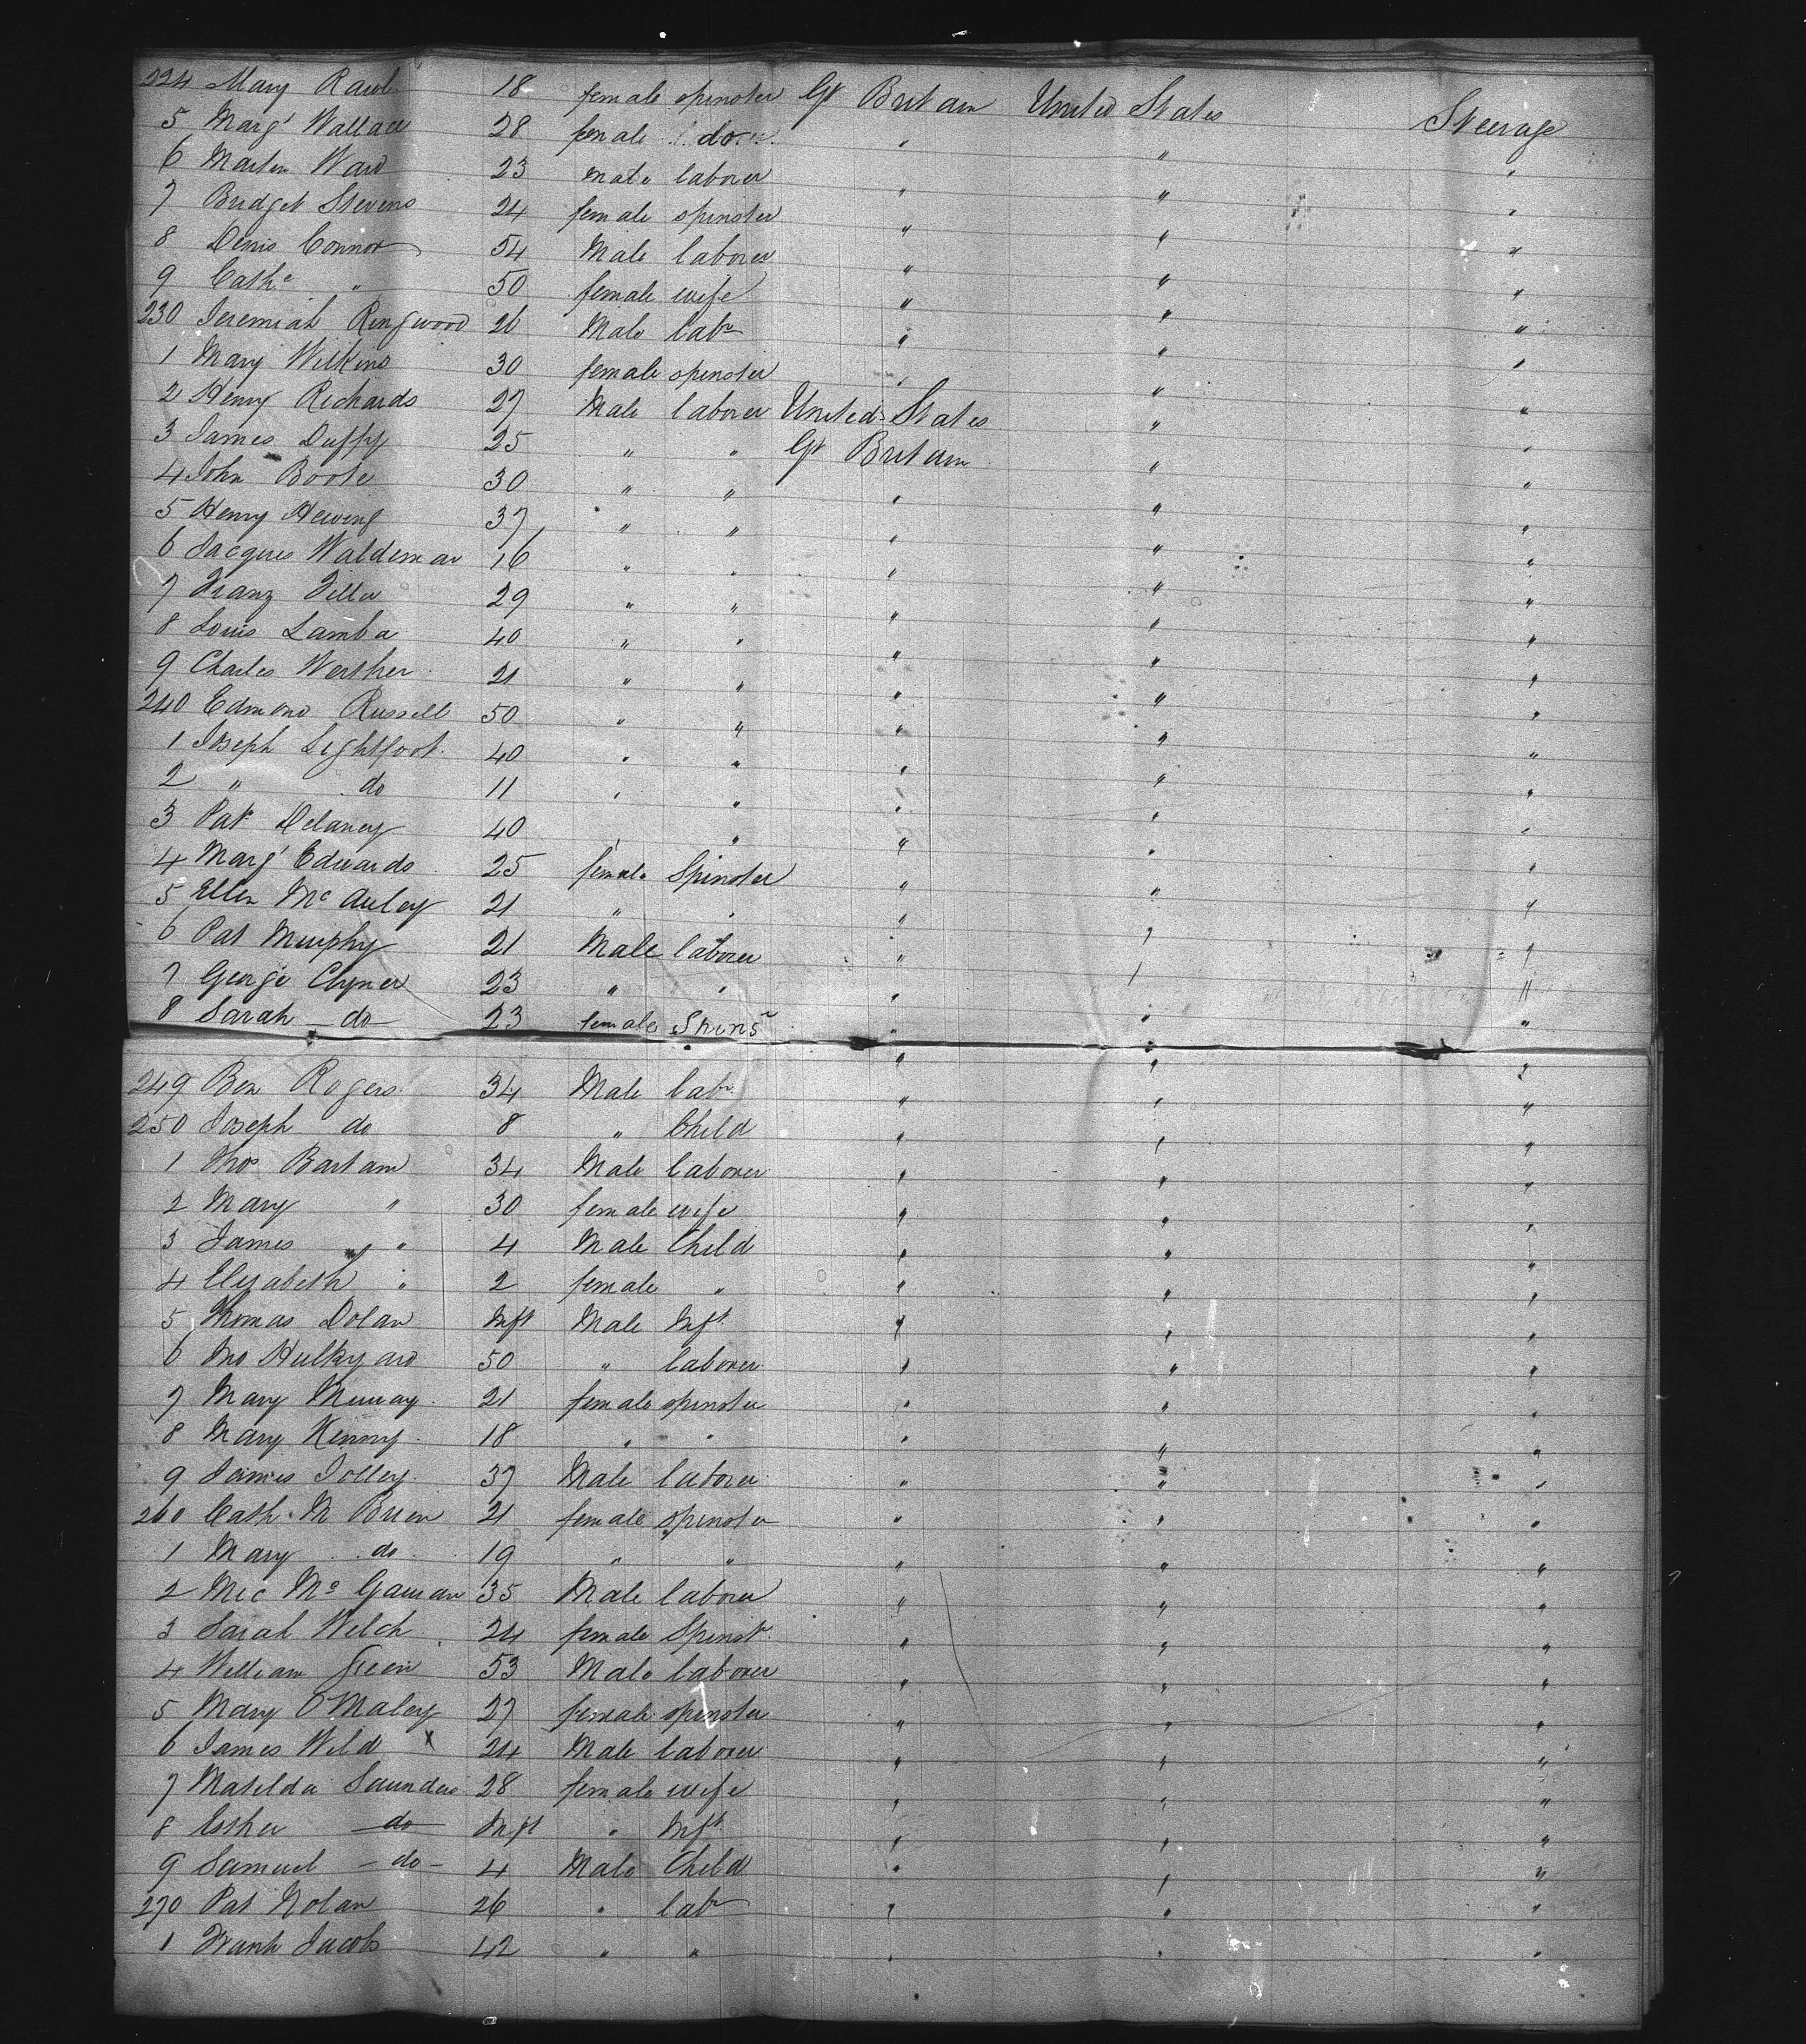 224 Mary Rawl 18 female spinster Gt Britain United States Steerage
5 Margt Wallace 28 female do " " "
6 Martin Ward 23 male laborer " " "
7 Bridget Stevens 24 female spinster " " "
8 Denis Connor 54 Male laborer " " "
9 Cathe " 50 female wife " " "
230 Jeremiah Ringwood 26 Male labr " " "
1 Mary Wilkins 30 female spinster " " "
2 Henry Richards 27 Male laborer United States " "
3 James Duffy 25 " " Gt Britain " "
4 John Boote 30 " " " " "
5 Henry Hewing 37 " " " " "
6 Jacques Waldemar 16 " " " " "
7 Franz Filla 29 " " " " "
8 Louis Lamba 40 " " " " "
9 Charles Werther 21 " " " " "
240 Edmond Russell 50 " " " " "
1 Joseph Lightfoot 40 " " " " "
2 " do 11 " " " " "
3 Pat Delaney 40 " " " " "
4 Margt Edwards 25 female Spinster " " "
5 Ellen McAuley 21 " " " " "
6 Pat Murphy 21 Male laborer " " "
7 George Clymer 23 " " " " "
8 Sarah do 23 female Spinsr " " "
249 Ben Rogers 34 Male labr " " "
250 Joseph do 8 " Child " " "
1 Thos Bartam 34 Male laborer " " "
2 Mary " 30 female wife " " "
3 James " 4 Male Child " " "
4 Elizabeth " 2 female " " " "
5 Thomas Dolan Inft Male Inft " " "
6 Jno Hulkyard 50 " laborer " " "
7 Mary Murray 21 female spinster " " "
8 Mary Kenny 18 " " " " "
9 James Jolley 37 Male laborer " " "
260 Cath M Brien 21 female spinster " " "
1 Mary do 19 " " " " "
2 Mic Mc Gauran 35 Male laborer " " "
3 Sarah Welch 24 female Spinst " " "
4 William Green 53 Male laborer " " "
5 Mary O'Maley 27 female spinster " " "
6 James Wild x 24 Male laborer " " "
7 Matilda Saunders 28 female wife " " "
8 Esther do Inft " Inft " " "
9 Samuel do 4 Male Child " " "
270 Pat Nolan 26 " labr " " "
1 Frank Jacobs 42 " " " " "